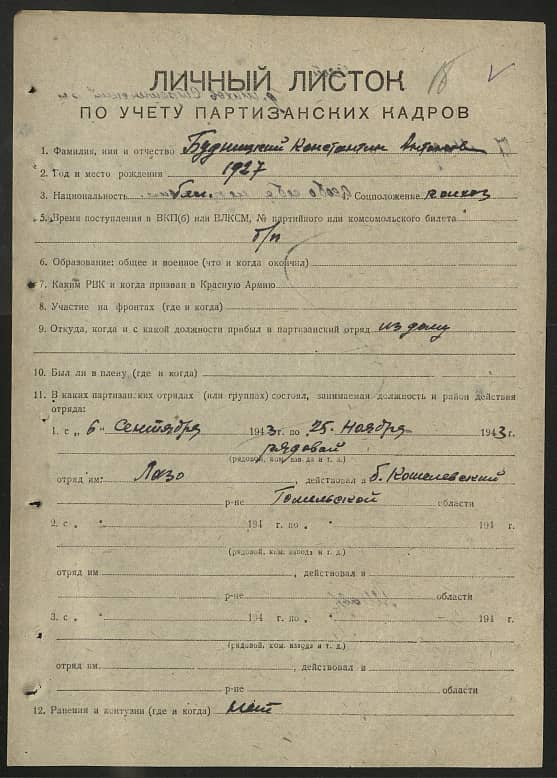 ЛИЧНЫЙ ЛИСТОК
ПО УЧЕТУ ПАРТИЗАНСКИХ КАДРОВ
1. Фамилия, имя и отчество Будницкий Константин Антонов
2. Год и место рождения 1927
3. Национальность бел. Соцположение колхоз
5. Время поступления в ВКП(б) или ВЛКСМ, № партийного или комсомольского билета
б/п
6. Образование: общее и военное (что и когда окончил)
7. Каким РВК и когда призван в Красную Армию
8. Участие на фронтах (где и когда)
9. Откуда, когда и с какой должности прибыл в партизанский отряд из дому
10. Был ли в плену (где и когда)
11. В каких партизанских отрядах (или группах) состоял, занимаемая должность и район действия
отряда:
1. с „ 6 " Сентября 1943 г. по 25 " Ноября 1943 г.
рядовой
(рядовой, ком. взвода и т. д.)
отряд им: Лазо , действовал в б. Кошелевский
р-не Гомельской области
2. с „ " 194 г. по „ " 194 г.
(рядовой, ком. взвода и т. д.)
отряд им , действовал в
р-не области
3. с „ " 194 г. по „ " 194 г.
(рядовой, ком. взвода и т. д.)
отряд им , действовал в
р-не области
12. Ранения и контузии (где и когда) нет